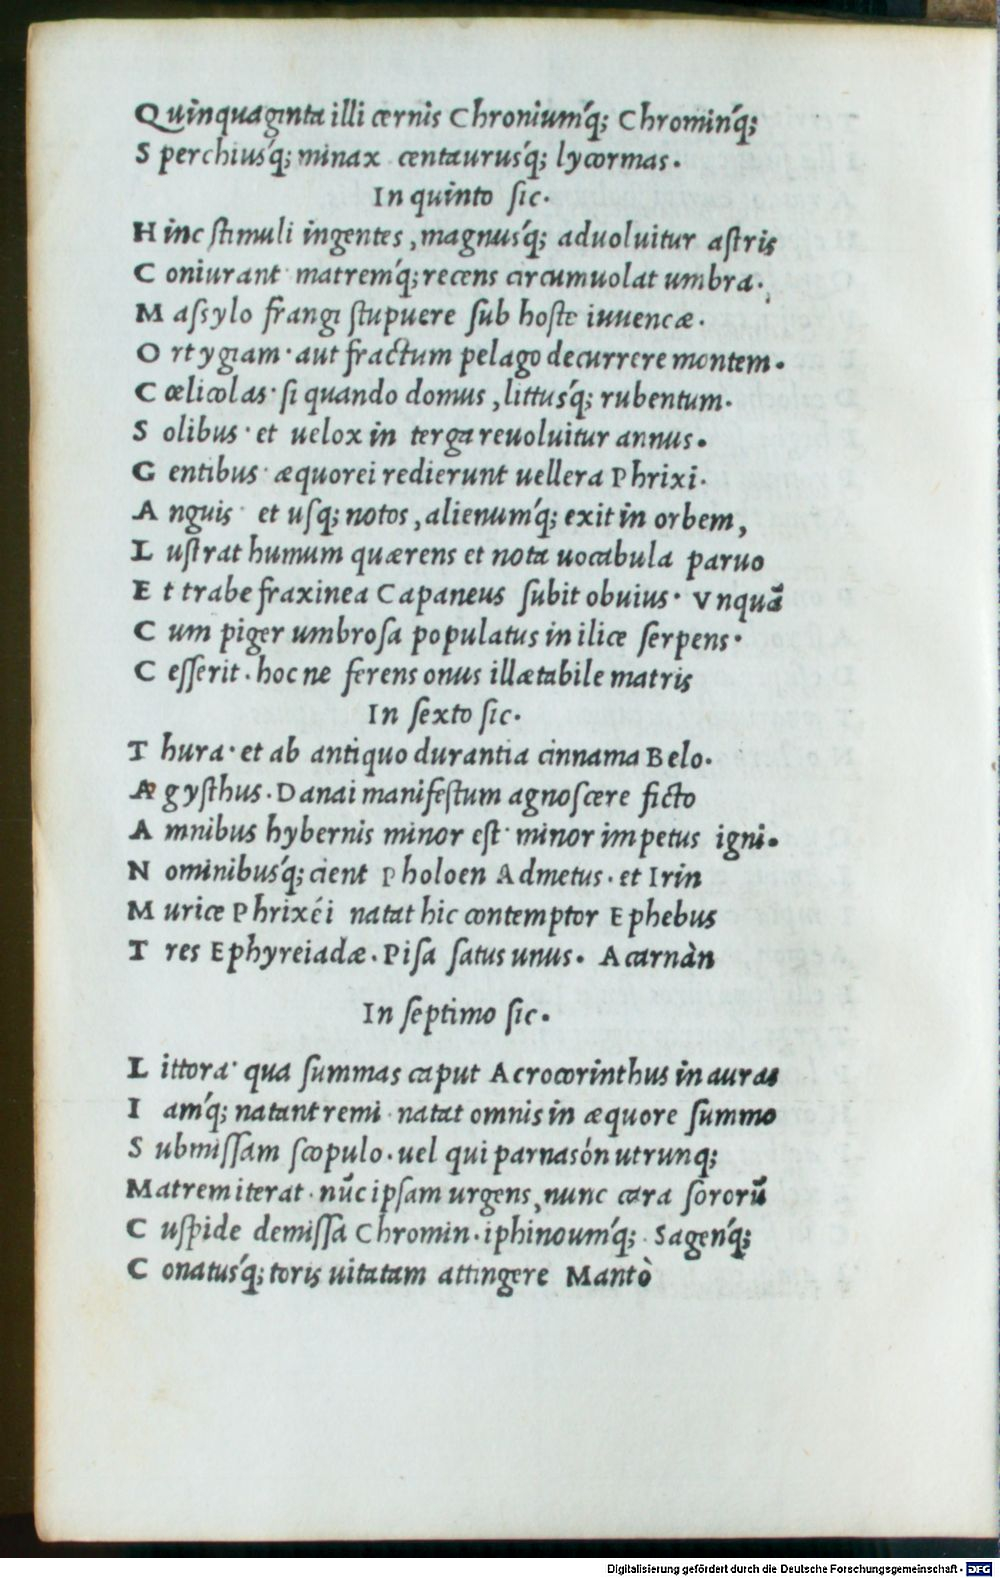 Quinquaginta illi cernis Chronium´q; Chromin´q;
S perchius´q; minax centaurus´q; lycormas.
In quinto sic.
H inc stimuli ingentes, magnus´q; aduoluitur astris
C oniurant· matrem´q; recens circumuolat umbra.
M assylo frangi stupuere sub hoste iuuencæ.
O rtygiam· aut fractum pelago decurrere montem.
C œlicolas· si quando domus, littus´q; rubentum.
S olibus· et uelox in terga reuoluitur annus.
G entibus· æquorei redierunt uellera Phrixi.
A nguis· et usq; notos, alienum´q; exit in orbem,
L ustrat humum quærens et nota uocabula paruo
E t trabe fraxinea Capaneus subit obuius· Vnquã
C um piger umbrosa populatus in ilice serpens·
C esserit. hoc ne ferens onus illætabile matris
In sexto sic.
T hura· et ab antiquo durantia cinnama Belo.
A gysthus. Danai manifestum agnoscere ficto
A mnibus hybernis minor est· minor impetus igni.
N ominibus´q; cient Pholoen Admetus. et Irin
M urice Phrixéi natat hic contemptor Ephebus
T res Ephyreiadæ. Pisa satus unus. Acarnàn
In septimo sic.
L ittora· qua summas caput Acrocorinthus in auras
I am´q; natant remi· natat omnis in æquore summo
S ubmissam scopulo. uel qui parnasón utrunq;
Matrem iterat. nũc ipsam urgens, nunc cara sororũ
C uspide demissa Chromin. iphinoum´q;. Sagen´q;
C onatus´q; toris uitatam attingere Mantò
Digitalisierung gefördert durch die Deutsche Forschungsgemeinschaft - DFG